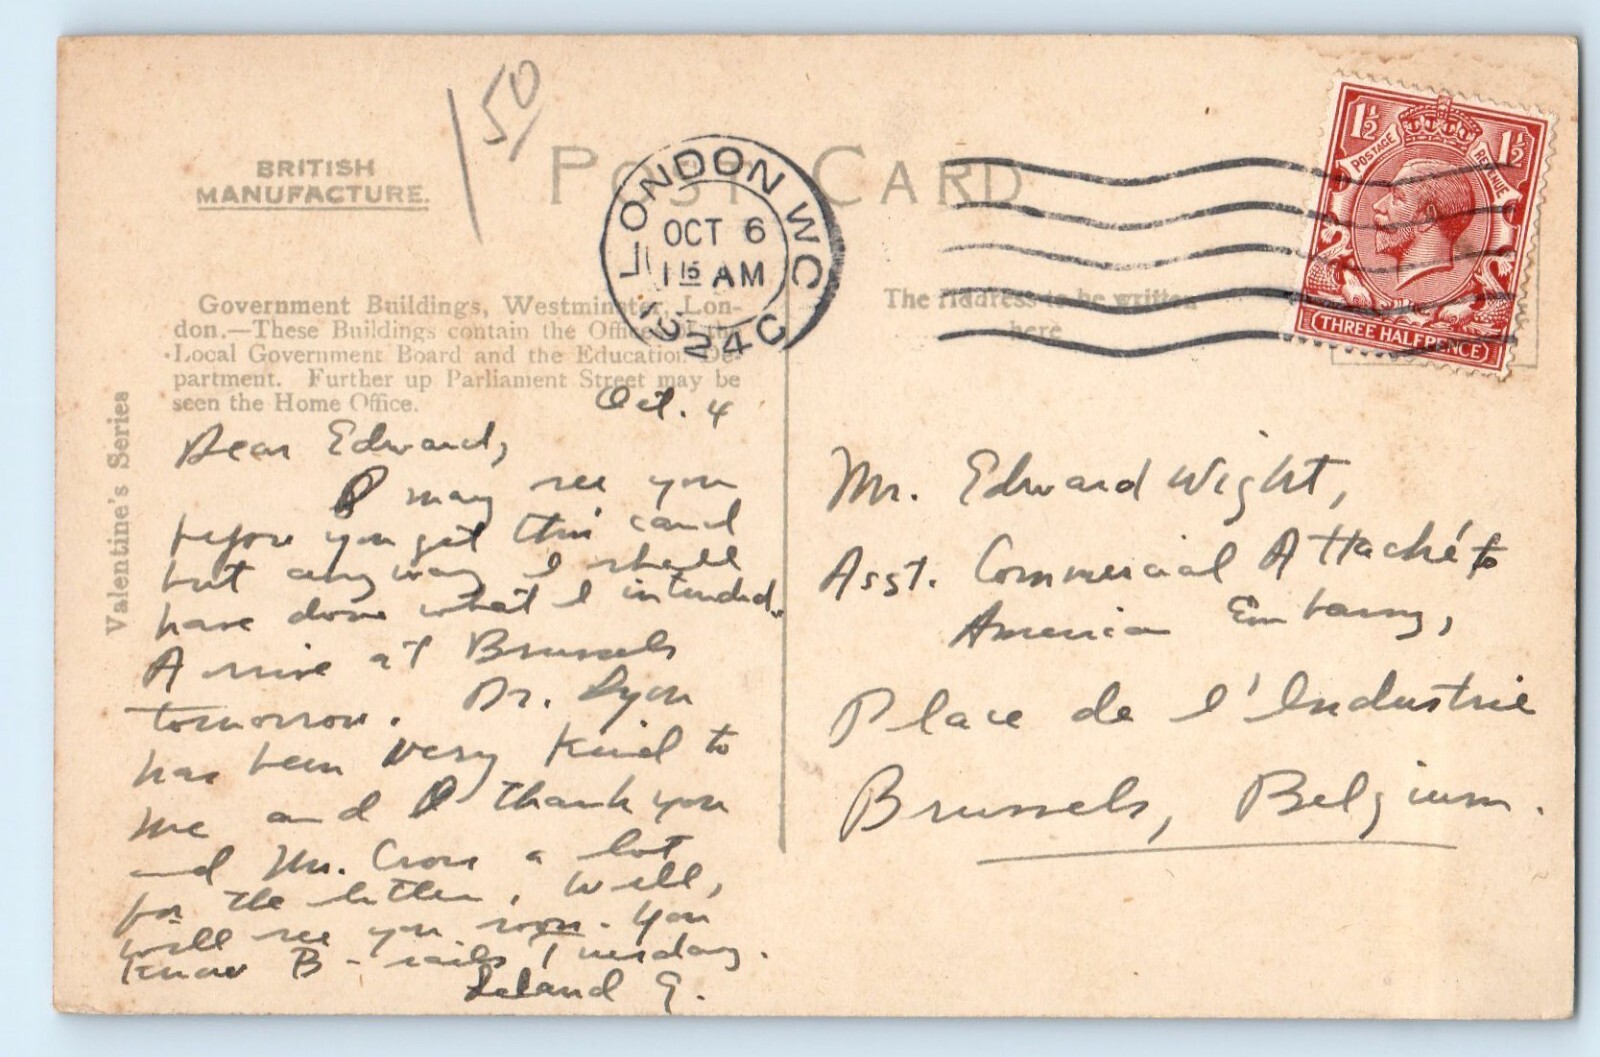 150
BRITISH
MANUFACTURE.
POST CARD
LONDON W.C.
OCT 6
1 15 AM
24
1½ 1½
POSTAGE REVENUE
THREE HALFPENCE
Government Buildings, Westminster, Lon-
don.—These Buildings contain the Offices of the
Local Government Board and the Education De-
partment. Further up Parliament Street may be
seen the Home Office.
Valentine's Series
The Address to be written
here
Oct. 4
Dear Edward,
I may see you
before you get this card
but anyway I shall
have done what I intended.
Arrive at Brussels
tomorrow. Dr. Lyon
has been very kind to
me and I thank you
and Mr. Cross a lot
for the letter. Well,
will see you soon. You
know B - sails Tuesday.
Leland G.
Mr. Edward Wight,
Asst. Commercial Attaché to
American Embassy,
Place de l'Industrie
Brussels, Belgium.